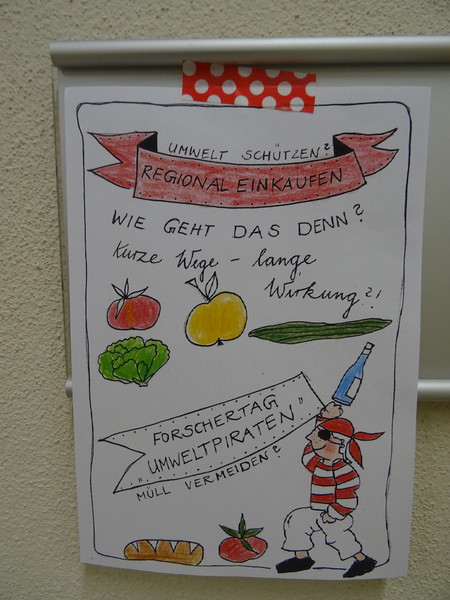 UMWELT SCHÜTZEN?
REGIONAL EINKAUFEN
WIE GEHT DAS DENN?
Kurze Wege - lange
Wirkung?!
FORSCHERTAG
"UMWELTPIRATEN"
MÜLL VERMEIDEN?